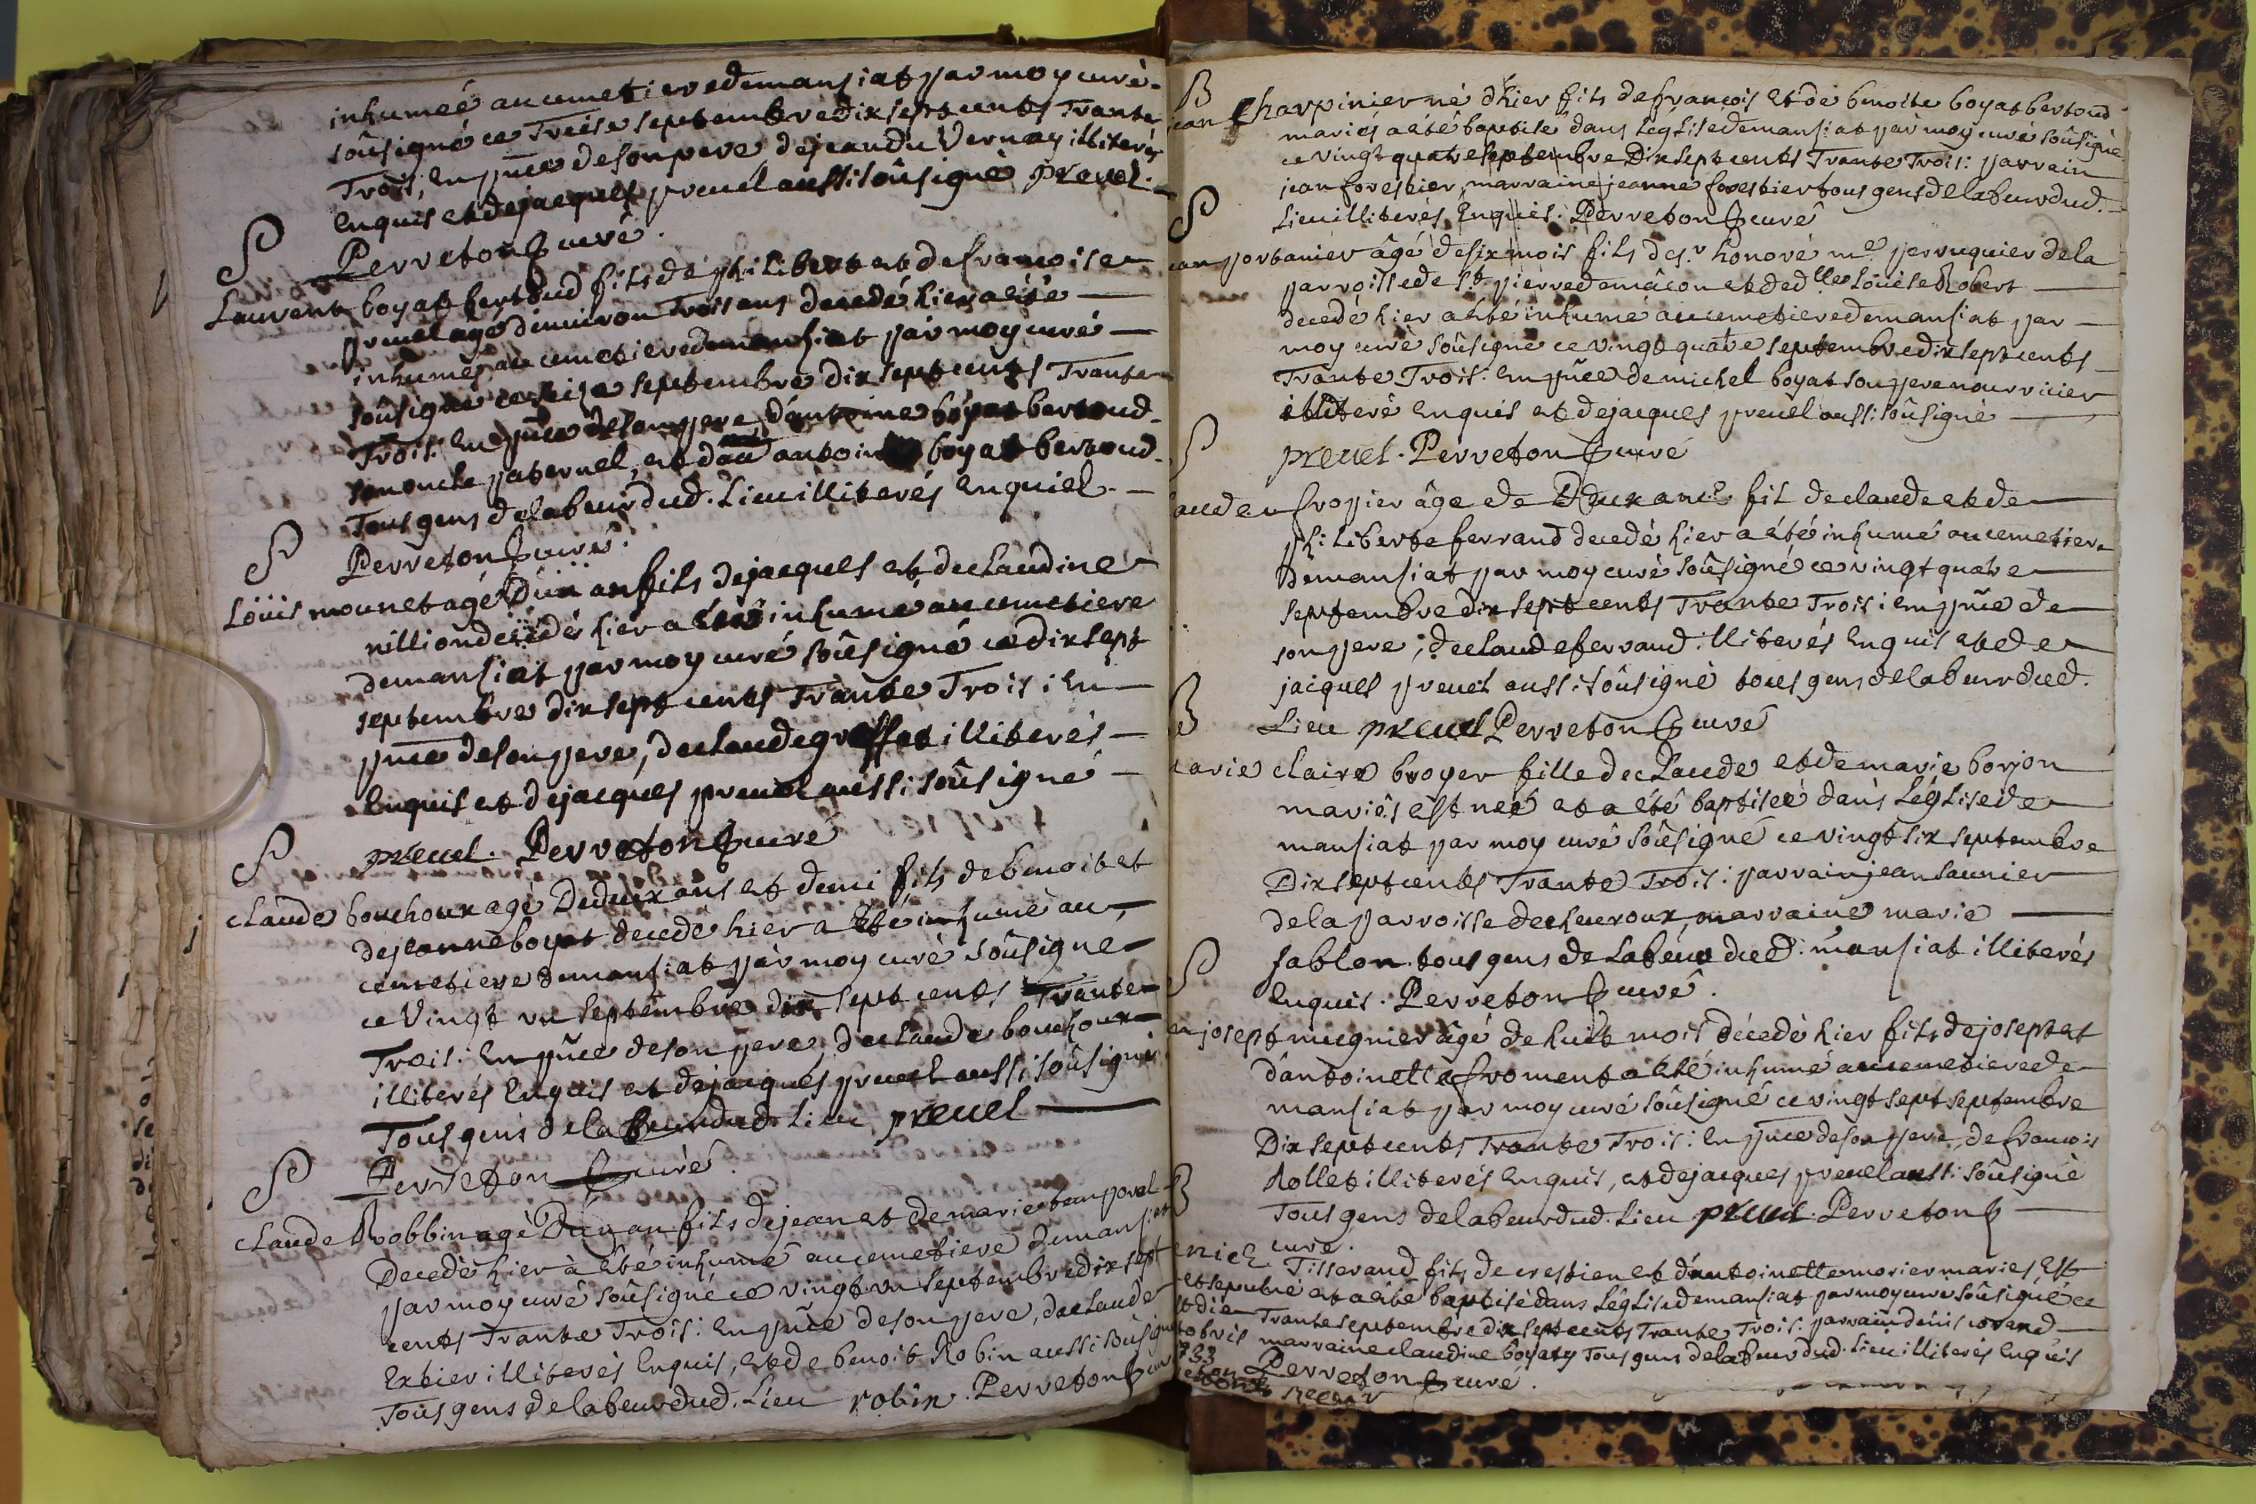 inhumeé au cemetiere demansiat par moy curé
soûsigné ce Treise septembre dix sept cents Trante
Trois, En pñce de son pere de jean du Vernay illiterés
Enquis et de jacques preuel aussi soûsigné preuel.
S
Perreton curé.
Laurent boyat bertoud fils de philibert et de francoise
preuel agé d'enuiron Trois ans decedé hier a été
inhumé au cemetiere demansiat par moy curé
soûsigné ce seise septembre dix sept cents Trante
Trois: En pñce de son pere, d'antoine boyat bertoud
son oncle paternel, et d'antoine boyat bertoud
Tous gens de labeur dud. Lieu illiterés Enquis.
S
Perreton curé.
Loüis mounet agé D'un an fils de jacques et de claudine
nillion decedé hier a été inhumé au cemetiere
demansiat par moy curé soûsigné ce dix sept
septembre dix sept cents Trante Trois: En
pñce de son pere, de claude greffet illiterés
Enquis et de jacques preuel aussi soûsigné
S
preuel. Perreton curé
claude bouchoux agé De deux ans et demi fils de benoit et
de jeanne boyat decedé hier a été inhumé au
cemetiere demansiat par moy curé soûsigné
ce Vingt un septembre dix sept cents Trante
Trois. En pñce de son pere, de claude bouchoux
illiterés Enquis et de jacques preuel aussi soûsigné
Tous gens de labeur dud. Lieu preuel
S
Perreton curé.
claude Robbin agé D'un an fils de jean et de marie
Decedé hier à été inhumé au cemetiere demansiat
par moy curé soûsigné ce vingt un septembre dix sept
cents Trante Trois: En pñce de son pere, de claude
Extier illiterés Enquis, et de benoit Robin aussi soûsigné
Tous gens de labeur dud. Lieu robin. Perreton curé
B
jean charpinier né d'hier fils de francois et de benoite boyat bertoud
mariés a été baptisé dans Léglise demansiat par moy curé soûsigné
ce vingt quatre septembre Dix sept cents Trante Trois: parrain
jean forestier, marraine jeanne forestier tous gens de labeur dud.
S
Lieu illiterés Enquis. Perreton curé
jean portanier âgé de six mois fils de s.r honoré m.e perruquier de la
parroisse de s.t pierre de mâcon et de d.lle Loüise Robert
decedé hier a été inhumé au cemetiere demansiat par
moy curé soûsigné ce vingt quatre septembre dix sept cents
Trante Trois: En pñce de michel boyat son pere nourricier
illiteré Enquis et de jacques preuel aussi soûsigné
S
preuel. Perreton curé
claude fropier âge de Deux ans fil de claude et de
philiberte ferrand decedé hier a été inhumé au cemetiere
demansiat par moy curé soûsigné ce vingt quatre
septembre dix sept cents Trante Trois: en pñce de
son pere, de claude ferrand illiterés Enquis et de
jacques preuel aussi soûsigné tous gens de labeur dud.
B
Lieu preuel Perreton curé
marie claire broyer fille de claude et de marie borjon
mariés est neé et a été baptiseé dans Léglise de
mansiat par moy curé soûsigné ce vingt six septembre
Dix sept cents Trante Trois: parrain jean saunier
de la parroisse de cheuroux, marraine marie
S
sablon tous gens de Labeur dud. mansiat illiterés
Enquis. Perreton curé.
josept mugnier âgé de huit mois decedé hier fils de josept et
d'antoinette froment a été inhumé au cemetiere de
mansiat par moy curé soûsigné ce vingt sept septembre
Dix sept cents Trante Trois: En pñce de son pere, de francois
Rollet illiterés Enquis, et de jacques preuel aussi soûsigné
B
Tous gens de labeur dud. Lieu preuel. Perreton
curé.
Tisserand fils de crestien et d'antoinette morier mariés Est
né et a été baptisé dans Léglise demansiat par moy curé soûsigné ce
Trante septembre dix sept cents Trante Trois: parrain denis
marraine claudine boyat Tous gens de labeur dud. Lieu illiterés Enquis
Perreton curé.